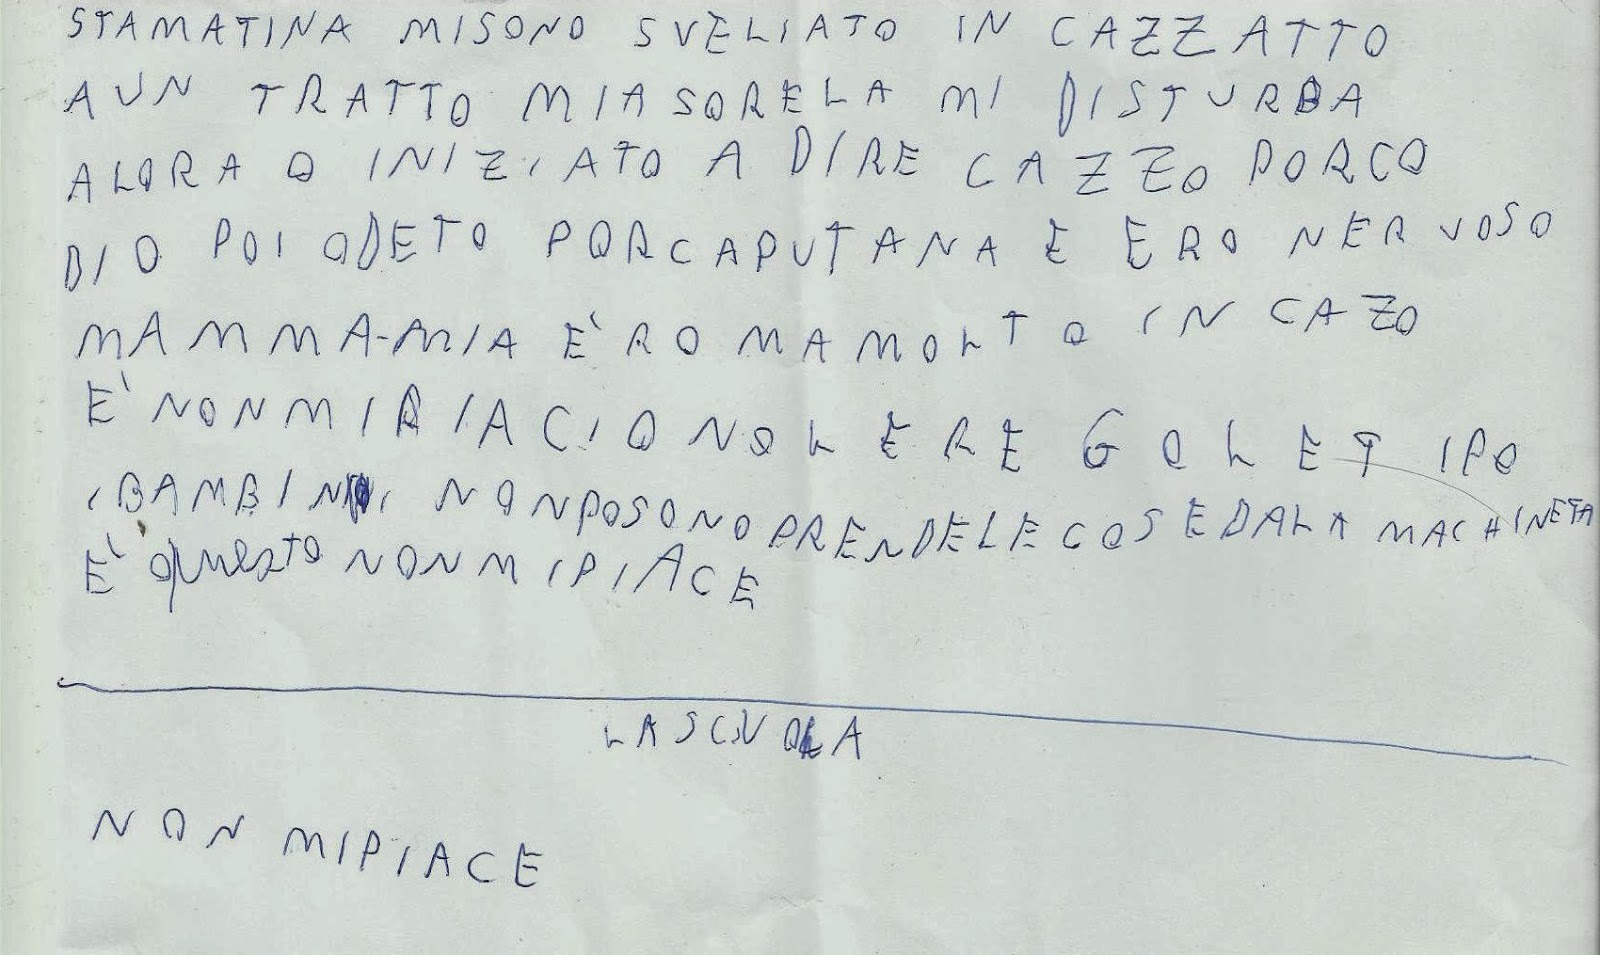 STAMATINA MI SONO SVELIATO IN CAZZATTO
AUN TRATTO MIA SORELA MI DISTURBA
ALORA O INIZIATO A DIRE CAZZO PORCO
DIO POI ODETO PORCAPUTANA E ERO NERVOSO
MAMMA-MIA E'RO MAMOLTO IN CAZO
E' NON MI PIACIO NOLERE GOLE TIPO
I BAMBINI NON POSONO PRENDELE COSE DALA MACHINETA
E' questo NON MI PIACE
LA SCUOLA
NON MI PIACE